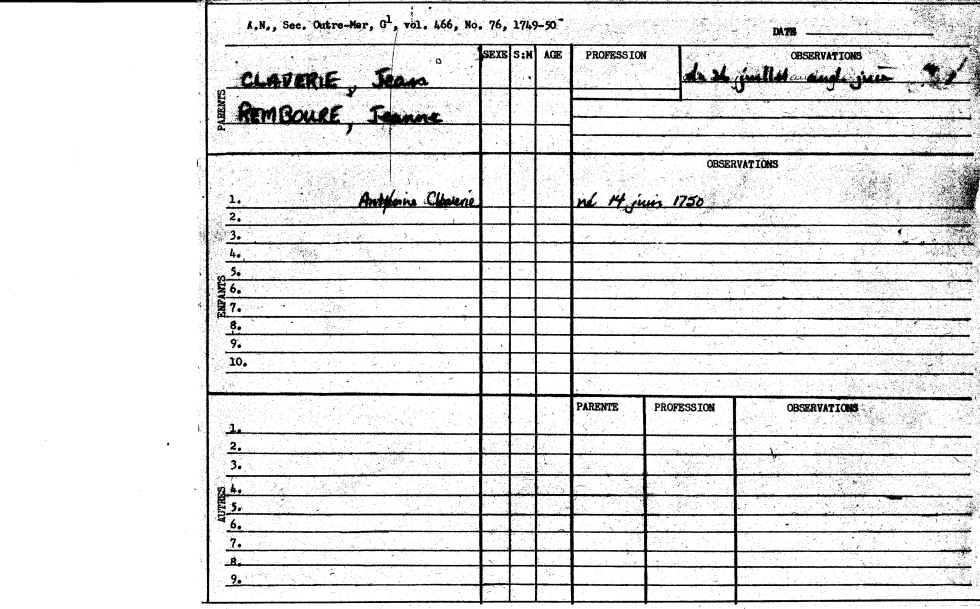 A.N., Sec. Outre-Mer, G1, vol. 466, No. 76, 1749-50
DATE
SEXE S:M AGE PROFESSION OBSERVATIONS
juillet juin
PARENTS
CLAVERIE, Jean
REMBOURE, Jeanne
OBSERVATIONS
ENFANTS
1. Anthoine Claverie né 14 juin 1750
2.
3.
4.
5.
6.
7.
8.
9.
10.
PARENTE PROFESSION OBSERVATIONS
AUTRES
1.
2.
3.
4.
5.
6.
7.
8.
9.